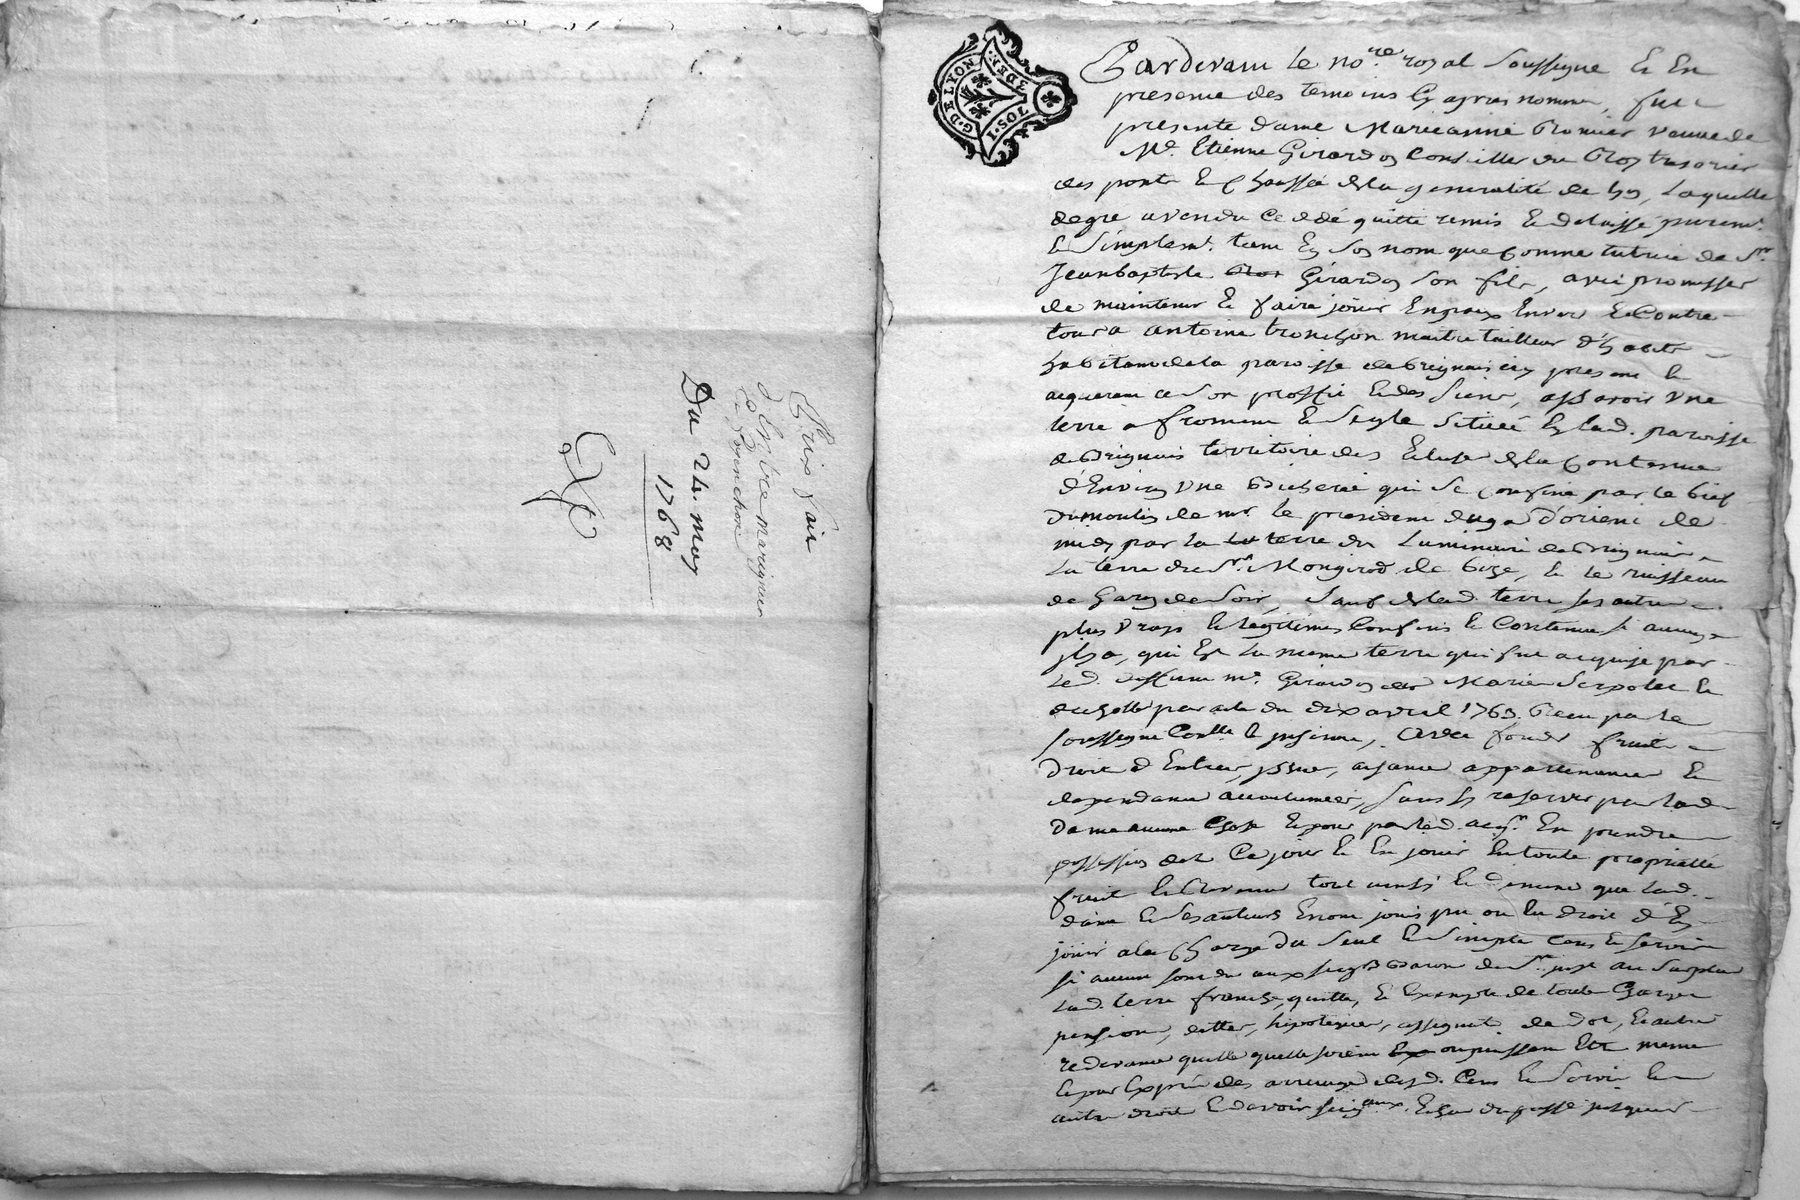 Prix fait
Entre marignier
& Pronchon
Du 24. may
1768
G. DE LYON
DEN.
Pardevant le no.re royal soussigné & En
presence des temoins Cy apres nommés, fut
presente dame Marieanne veuve de
Me. Etienne Girardon Conseiller du Roy tresorier
des ponts & Chaussées de la generalité de lyon, Laquelle
degré a vendu Cedé quitté remis & delaissé purem.t
& Simplem.t tant En Son nom que Comme tutrice de Sr.
Jeanbaptiste Girardon Son fils, avec promesse
de maintenir & faire jouir Enpaix Envers & Contre
tous a antoine tronchon maitre tailleur d'habits
habitant de la paroisse de brignais icy present &
acquerant a Son proffit & des Siens, assavoir Une
terre a froment & Seigle Située En lad. paroisse
de Brignais territoire des de la Contenue
d'Environ Une Bicherée qui Se Confine par le bief
Du moulin de mr. le president dugas d'orient de
midy par la terre du Luminaire de Brignais
La terre de Sr. Mongirod de bize, & le ruisseau
de Garon de Soir, Sauf de lad. terre Ses autres
plus Vrays & legitimes Confins & Contenue Si aucuns
il y a, qui Est La meme terre qui fut acquise par
Led. deffunt mr. Girardon de Marie Serpolet &
par acte du dix avril 1763. Receu par le
soussigné Contlé & insinué, avec fonds fruits
Droits d'Entrées, issues, aisances appartenances &
dependances accoutumées, Sans En reserver par lad.
Dame aucune Chose & pour par led. acq.r En prendre
possession des Ce jour & En jouir En toute proprieté
fruits & Revenus tout ainsi & Dememe que Lad.
dame & Ses auteurs En ont joui pu ou du droit d'En
jouir a la Charge Du Seul & Simple Cens & Servis
Si aucun Sont du aux Seig.rs Baron de St. just au Surplus
Lad. terre franche, quitte, & Exempte de toute Charges
pension, dettes, hipoteques, assignat de dot, & autres
redevances quelle quelle soient ou puissent Etre meme
& par Exprès des arrerages desd. Cens & Servis &
autres droits & devoirs Seig.aux Echus du passé jusques